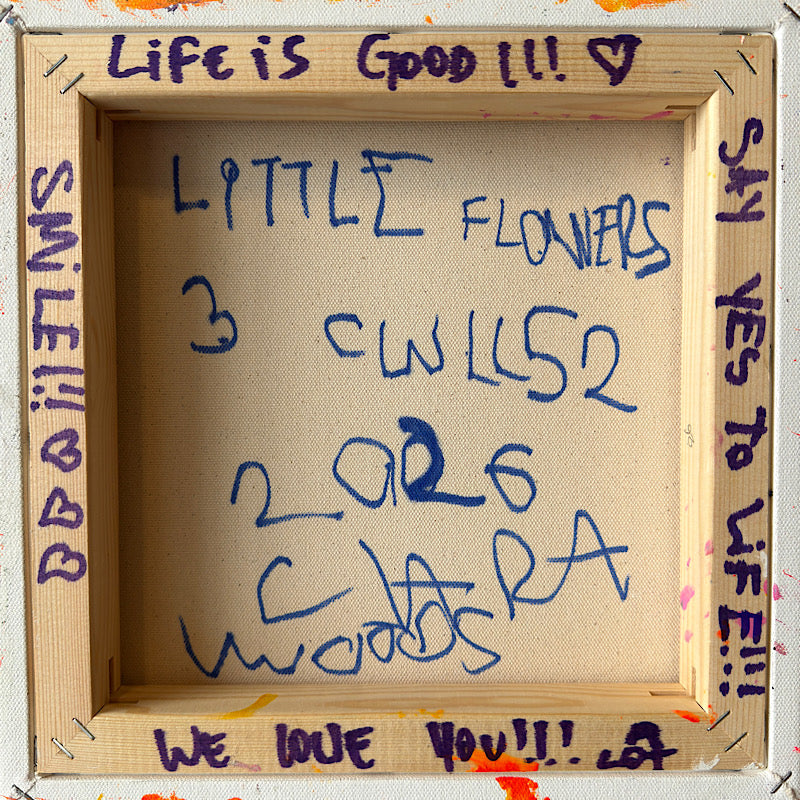 LiFE iS GOOD!!! ♡
SMiLE!!! ♡♡♡
SAY YES TO LiFE!!!
LiTTLE FLOWERS
3 CWLL52
2026
CLARA
WOODS
WE LOVE YOU!!!